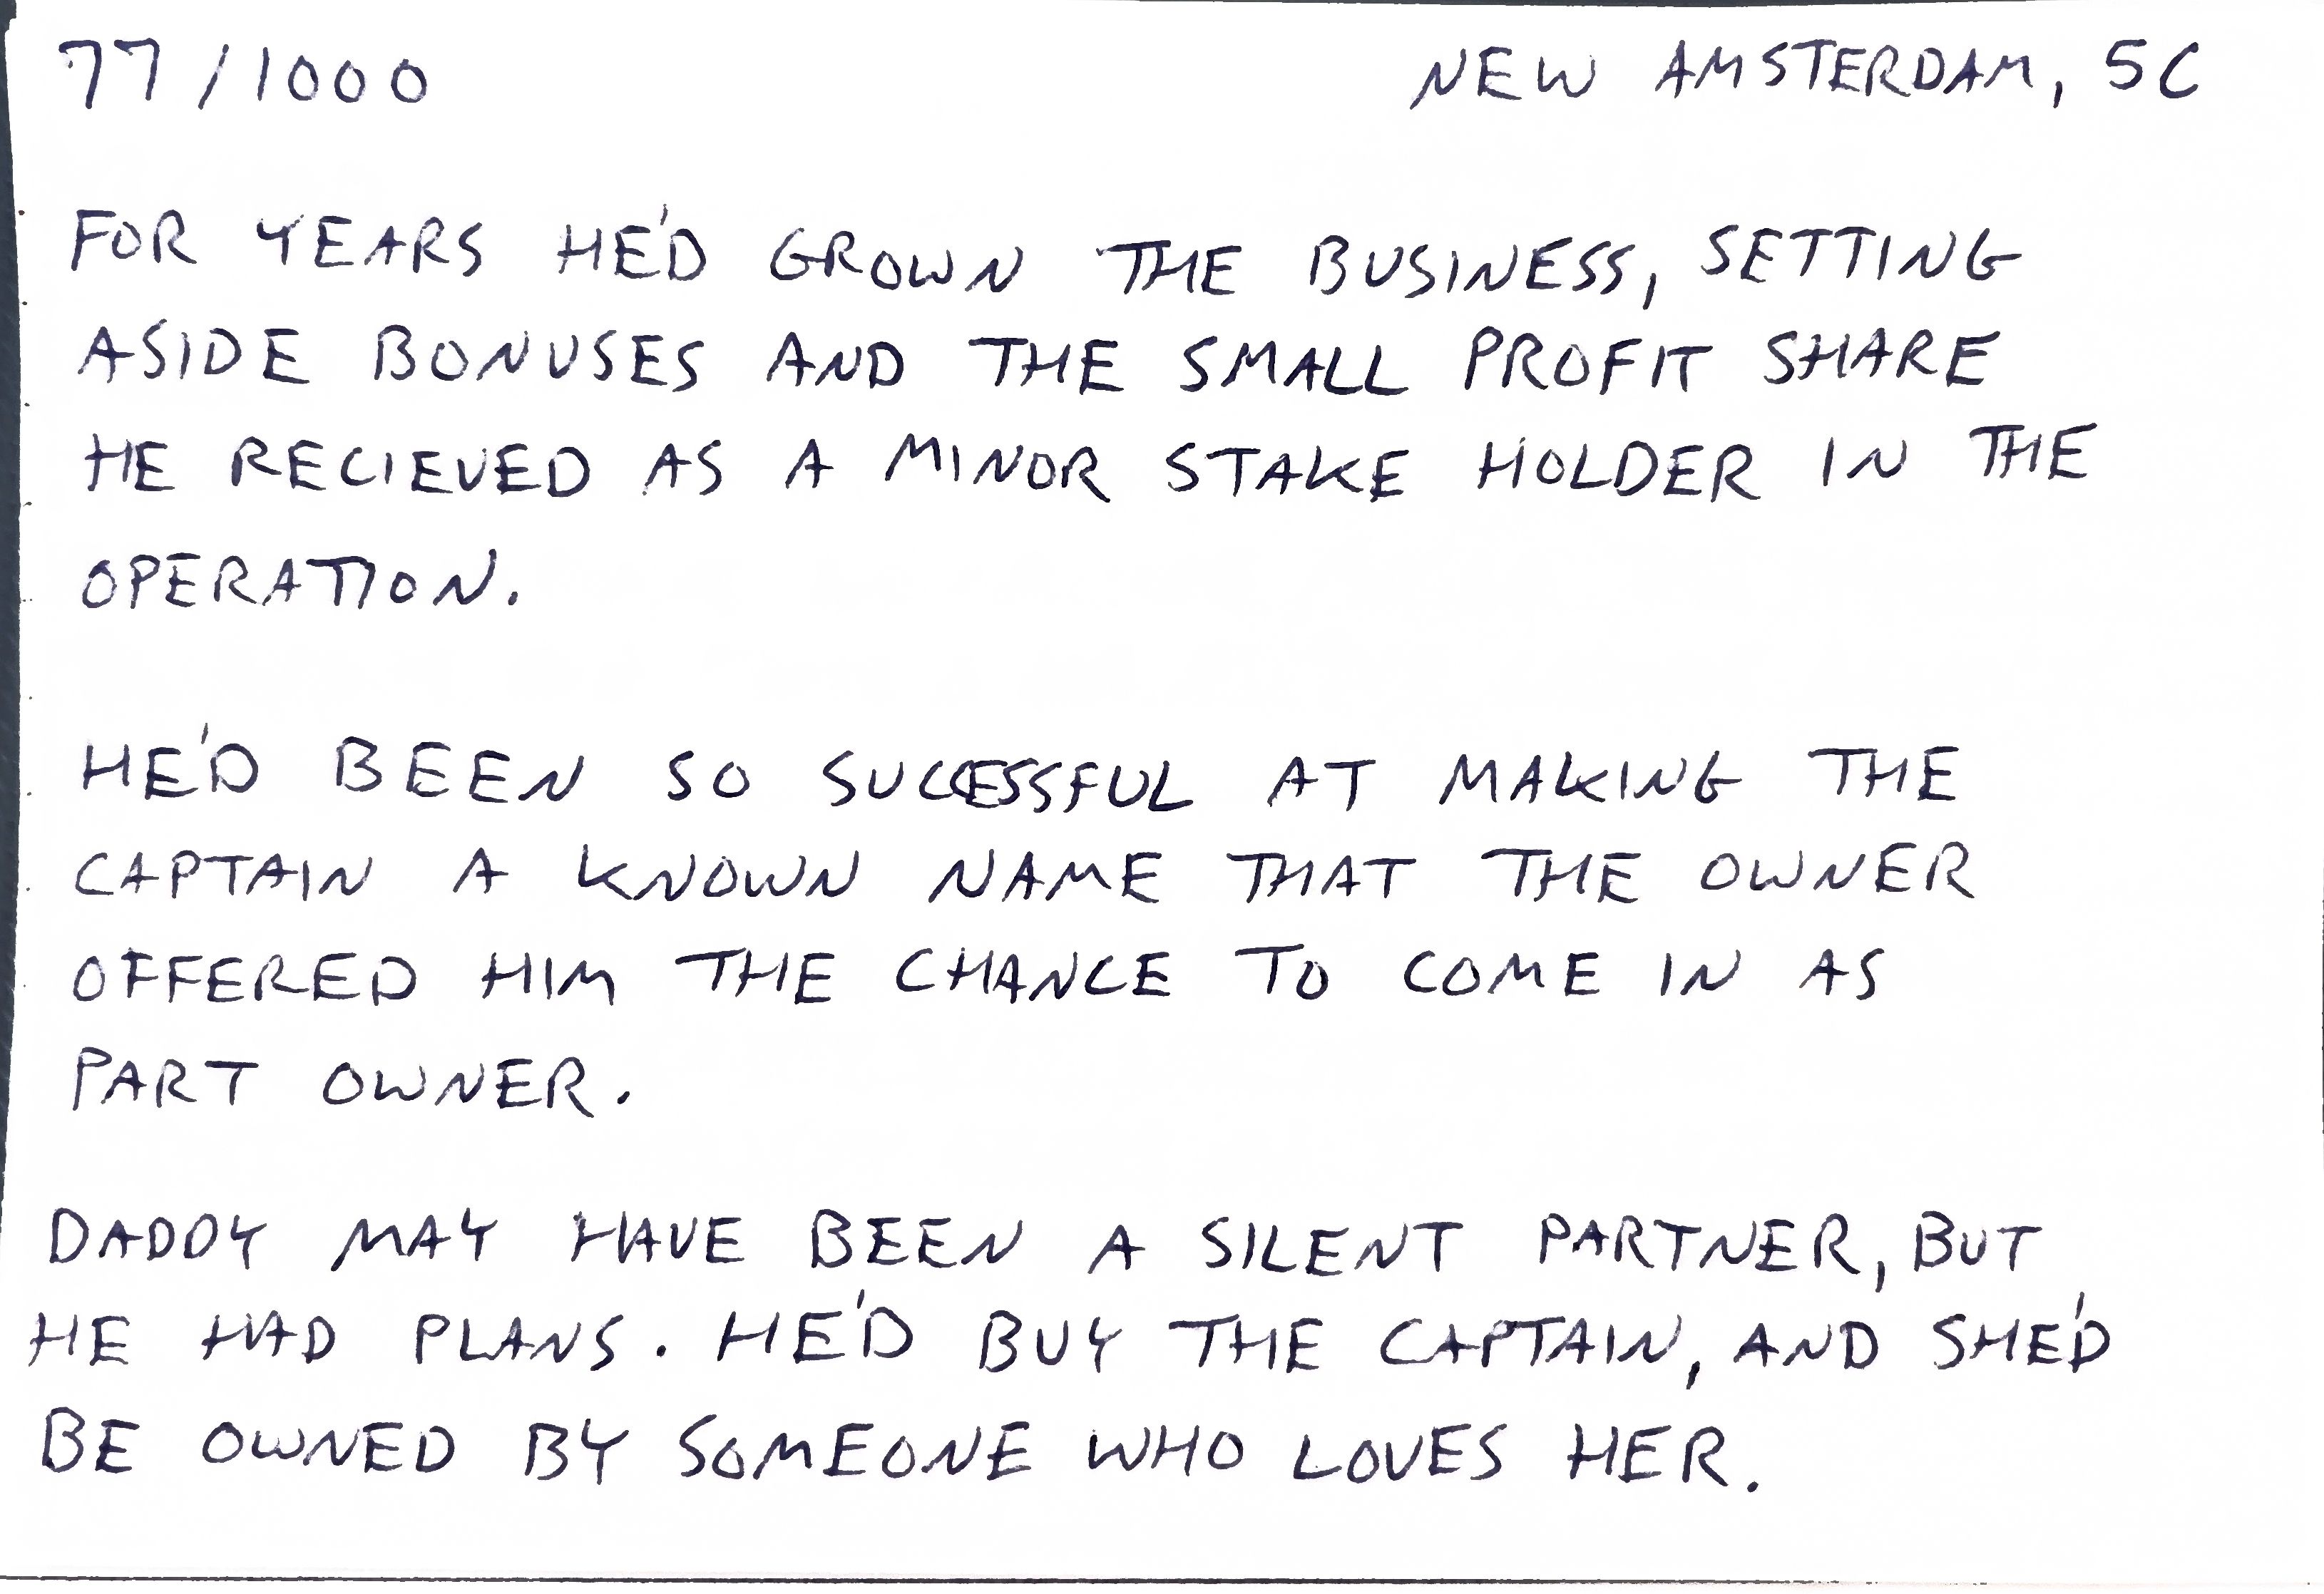 77/1000 NEW AMSTERDAM, 5C
FOR YEARS HE'D GROWN THE BUSINESS, SETTING
ASIDE BONUSES AND THE SMALL PROFIT SHARE
HE RECIEVED AS A MINOR STAKE HOLDER IN THE
OPERATION.
HE'D BEEN SO SUCCESSFUL AT MAKING THE
CAPTAIN A KNOWN NAME THAT THE OWNER
OFFERED HIM THE CHANCE TO COME IN AS
PART OWNER.
DADDY MAY HAVE BEEN A SILENT PARTNER, BUT
HE HAD PLANS. HE'D BUY THE CAPTAIN, AND SHE'D
BE OWNED BY SOMEONE WHO LOVES HER.